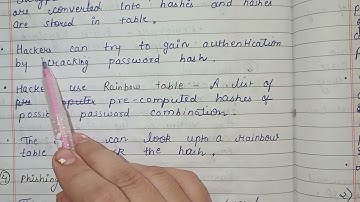 are converted into hashes and hashes
are stored in table.
• Hackers can try to gain authentication
by cracking password hash.
• Hackers use Rainbow table - A list of
pre-computed hashes of
possible password combination.
• The can look upto a rainbow
table the hash.
④ Phishing